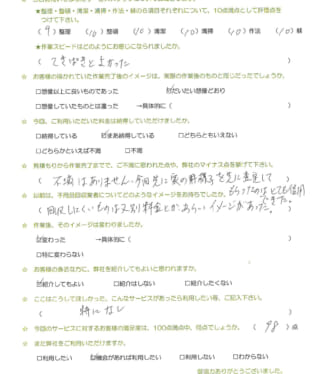 ★整理・整頓・清潔・清掃・作法・躾の6項目それぞれについて、10点満点として評価点を
つけて下さい。
( 9 )整理 ( 10 )整頓 ( 10 )清潔 ( 10 )清掃 ( 10 )作法 ( 10 )躾
★作業スピードはどのようにお感じになられましたか。
( てきぱきとよかった )
☆ お客様の描かれていた作業完了後のイメージは、実際の作業後のものと同じだったでしょうか。
□想像以上に良いものであった ☑だいたい想像どおり
□想像していたものとは違った →具体的に( )
☆ 今回、ご利用いただいた料金は納得していただけましたか。
□納得している ☑まあ納得している □どちらともいえない
□どちらかといえば不満 □不満
☆ 見積もりから作業完了までで、ご不満に思われた点や、弊社のマイナス点を挙げて下さい。
( 不満はありません。今回先に家の
☆ 以前は、不用品回収業者についてどのようなイメージをお持ちでしたか。
回収しにくいものは又別料金とか、あらいイメージがあった。
☆ 作業後、そのイメージは変わりましたか。
☑変わった →具体的に( )
□特に変わらない
☆ お客様の身近な方に、弊社を紹介してもよいと思われますか。
☑紹介してもよい □紹介はしない □紹介したくない
☆ ここはこうしてほしかった、こんなサービスがあったら利用したい等、ご記入下さい。
( 特になし )
☆ 今回のサービスに対するお客様の満足度は、100点満点中、何点でしょうか。 ( 98 )点
☆ また弊社をご利用いただけますか。
□利用したい ☑機会があれば利用したい □利用しない □わからない
ご協力ありがとうございました。